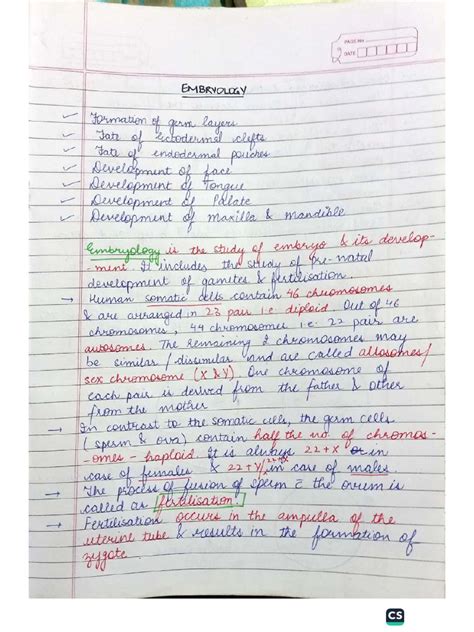 PAGE No.
DATE
EMBRYOLOGY
✓ Formation of germ layers
✓ Fate of Ectodermal clefts
✓ Fate of endodermal pouches
✓ Development of face
✓ Development of Tongue
✓ Development of Palate
✓ Development of Maxilla & Mandible
Embryology is the study of embryo & its develop-
ment. It includes the study of pre-natal
development of gametes & fertilisation.
→ Human somatic cells contain 46 chromosomes
& are arranged in 23 pair i.e. diploid. Out of 46
chromosomes, 44 chromosomes i.e. 22 pair are
autosomes. The remaining 2 chromosomes may
be similar / disimilar and are called allosomes/
sex chromosome (X & Y). One chromosome of
each pair is derived from the father & other
from the mother
→ In contrast to the somatic cells, the germ cells
(sperm & ova) contain half the no. of chromos-
-omes - haploid. It is always 22+X in
case of females & 22+Y/22+X in case of males.
→ The process of fusion of sperm c̄ the ovum is
called as fertilisation
→ Fertilisation occurs in the ampulla of the
uterine tube & results in the formation of
zygote
CS